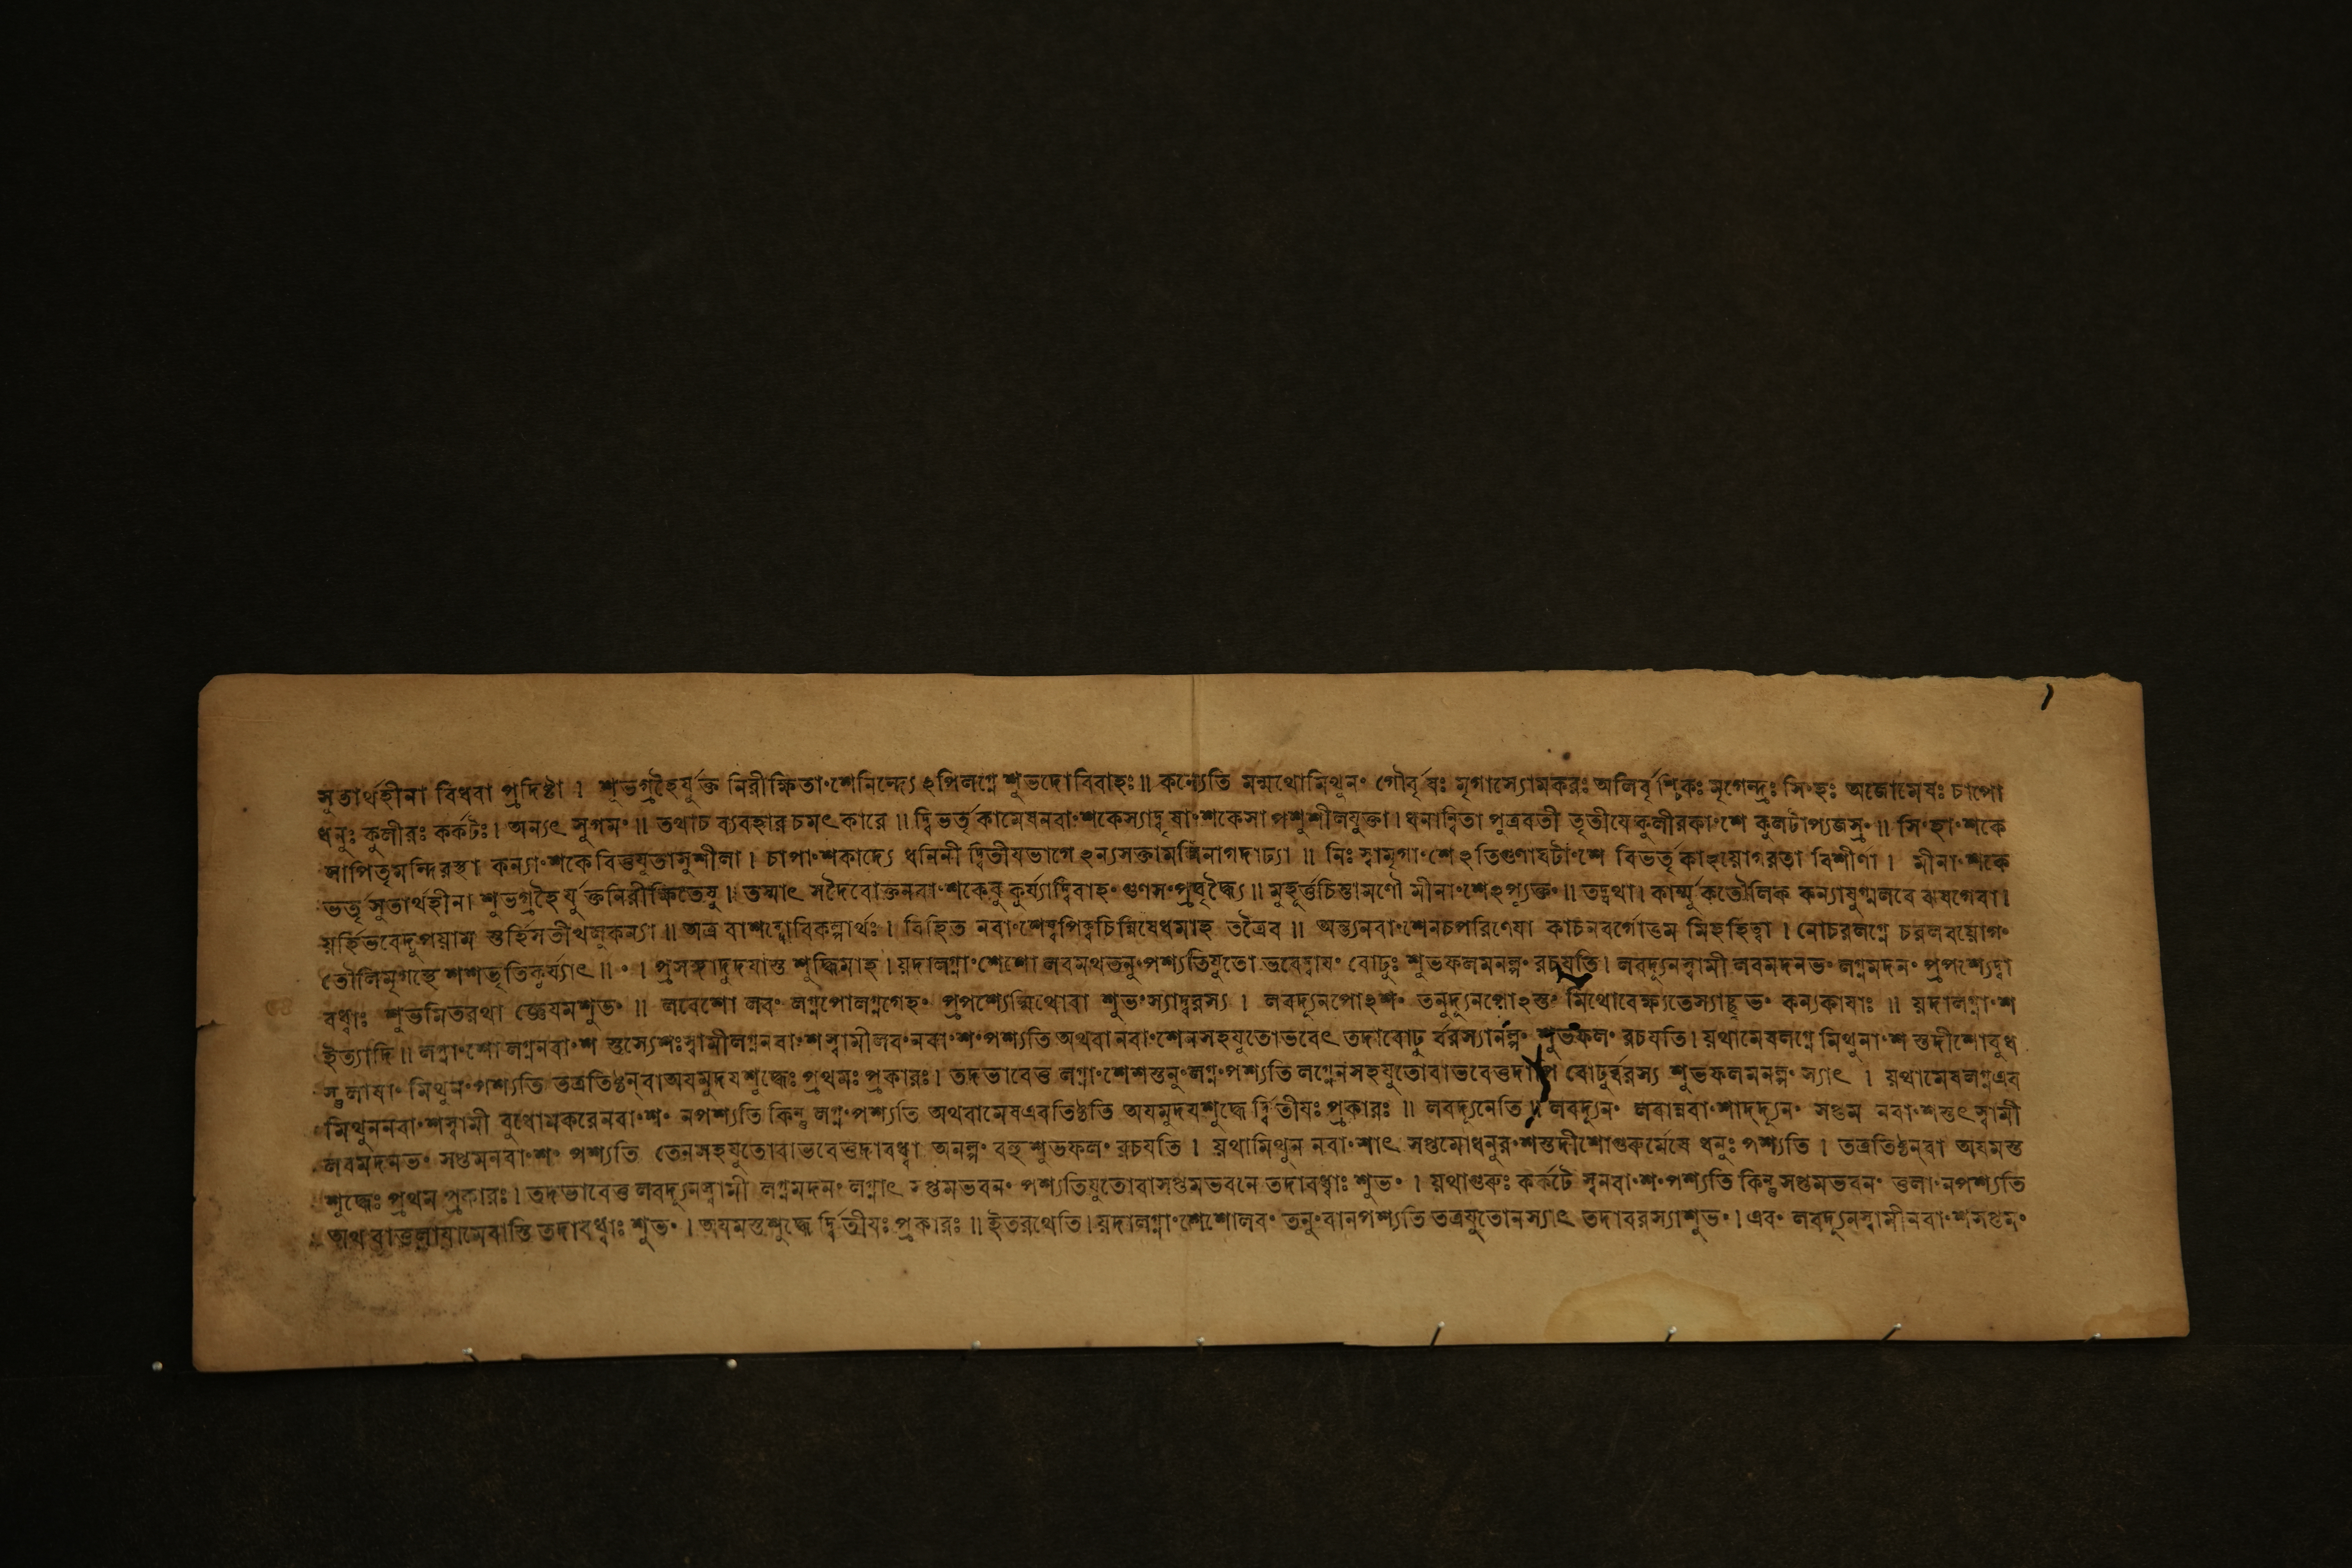 সুতার্থহীনা বিধবা প্রদিষ্টা । শুভগ্রহৈর্যুক্ত নিরীক্ষিতাংশেনিন্দ্যেঽপিলগ্নে শুভদোবিবাহঃ ॥ কন্যেতি মন্মথোমিথুনং গৌর্বৃষঃ মৃগাস্যোমকরঃ অলির্বৃশ্চিকঃ মৃগেন্দ্রঃ সিংহঃ অজোমেষঃ চাপো
ধনুঃ কুলীরঃ কর্কটঃ । অন্যৎ সুগমং ॥ তথাচ ব্যবহার চমৎকারে ॥ দ্বিভর্তৃকামেষনবাংশকেস্যাদ্বৃষাংশকেসা পশুশীলযুক্তা । ধনান্বিতা পুত্রবতী তৃতীযেকুলীরকাংশে কুলটাপ্যজস্রং ॥ সিংহাংশকে
সাপিতৃমন্দিরস্থা কন্যাংশকেবিত্তযুতাসুশীলা । চাপাংশকাদ্যে ধনিনী দ্বিতীযভাগেঽন্যসক্তা ॥ নিঃস্বামৃগাংশেঽতিগুণাঘটাংশে বিভর্তৃকা বিশীর্ণা । মীনাংশকে
ভর্তৃসুতার্থহীনা শুভগ্রহৈর্যুক্তনিরীক্ষিতেষু । তস্মাৎ সদৈবোক্তনবাংশকেষু কুর্য্যাদ্বিবাহং গুণসংপ্রবৃদ্ধ্যৈ ॥ মুহূর্ত্তচিন্তামণৌ মীনাংশেঽপ্যুক্তং ॥ তদ্যথা । কার্ম্মুকতৌলিক কন্যাযুগ্মলবে ঝষগেবা ।
য়র্হিভবেদুপয়াম স্তর্হিসতীখলুকন্যা ॥ অত্র বাশব্দোবিকল্পার্থঃ । বিহিত নবাংশেষ্বপিক্বচিন্নিষেধমাহ তত্রৈব ॥ অন্ত্যনবাংশেনচপরিণেযা কাচনবর্গোত্তম মিহহিত্বা । নোচরলগ্নে চরলবয়োগং
তৌলিমৃগস্থে শশভৃতিকুর্য্যাৎ ॥ ॰ । প্রসঙ্গাদুদযাস্ত শুদ্ধিমাহ । য়দালগ্নাংশেশো লবমথতনুংপশ্যতিযুতো ভবেদ্বাযং বোঢুঃ শুভফলমনল্পং রচযতি । লবদ্যূনস্বামী লবমদনভং লগ্নমদনং প্রপশ্যেদ্বা
বধ্বাঃ শুভমিতরথা জ্ঞেযমশুভং ॥ লবেশো লবং লগ্নপোলগ্নগেহং প্রপশ্যেন্মিথোবা শুভংস্যাদ্বরস্য । লবদ্যূনপোঽংশং তনুদ্যূনপোঽস্তং মিথোবেক্ষ্যতেস্যাচ্ছুভং কন্যকাযাঃ ॥ য়দালগ্নাংশ
ইত্যাদি ॥ লগ্নাংশো লগ্ননবাংশ স্তস্যেশঃস্বামীলগ্ননবাংশস্বামীলবংনবাংশংপশ্যতি অথবানবাংশেনসহযুতোভবেৎ তদাবোঢু র্বরস্যানল্পং শুভফলং রচযতি । য়থামেষলগ্নে মিথুনাংশ স্তদীশোবুধ
স্তুলাযাং মিথুনংপশ্যতি তত্রতিষ্ঠন্বাঅযমুদযশুদ্ধেঃ প্রথমঃ প্রকারঃ । তদভাবেত্ত লগ্নাংশেশস্তনুংলগ্নংপশ্যতি লগ্নেনসহযুতোবাভবেত্তদাপি বোঢুর্বরস্য শুভফলমনল্পং স্যাৎ । য়থামেষলগ্নএব
মিথুননবাংশস্বামী বুধোমকরেনবাংশং নপশ্যতি কিন্তু লগ্নংপশ্যতি অথবামেষএবতিষ্ঠতি অযমুদযশুদ্ধে র্দ্বিতীযঃ প্রকারঃ ॥ লবদ্যূনেতি ॥ লবদ্যূনং লবান্নবাংশাদ্দ্যূনং সপ্তম নবাংশস্তৎস্বামী
লবমদনভং সপ্তমনবাংশং পশ্যতি তেনসহযুতোবাভবেত্তদাবধ্বা অনল্পং বহু শুভফলং রচযতি । য়থামিথুন নবাংশাৎ সপ্তমোধনুরংশস্তদীশোগুরুর্মেষে ধনুঃ পশ্যতি । তত্রতিষ্ঠন্বা অযমস্ত
শুদ্ধেঃ প্রথম প্রকারঃ । তদভাবেত্ত লবদ্যূনস্বামী লগ্নমদনং লগ্নাৎ সপ্তমভবনং পশ্যতিযুতোবাসপ্তমভবনে তদাবধ্বাঃ শুভং । য়থাগুরুঃ কর্কটে স্বনবাংশংপশ্যতি কিন্তুসপ্তমভবনং তুলাংনপশ্যতি
অথ বাতুলাযামেবাস্তি তদাবধ্বাঃ শুভং । অযমস্তশুদ্ধে র্দ্বিতীযঃ প্রকারঃ ॥ ইতরথেতি । য়দালগ্নাংশেশোলবং তনুংবানপশ্যতি তত্রযুতোনস্যাৎ তদাবরস্যাশুভং । এবং লবদ্যূনস্বামীনবাংশসপ্তমং